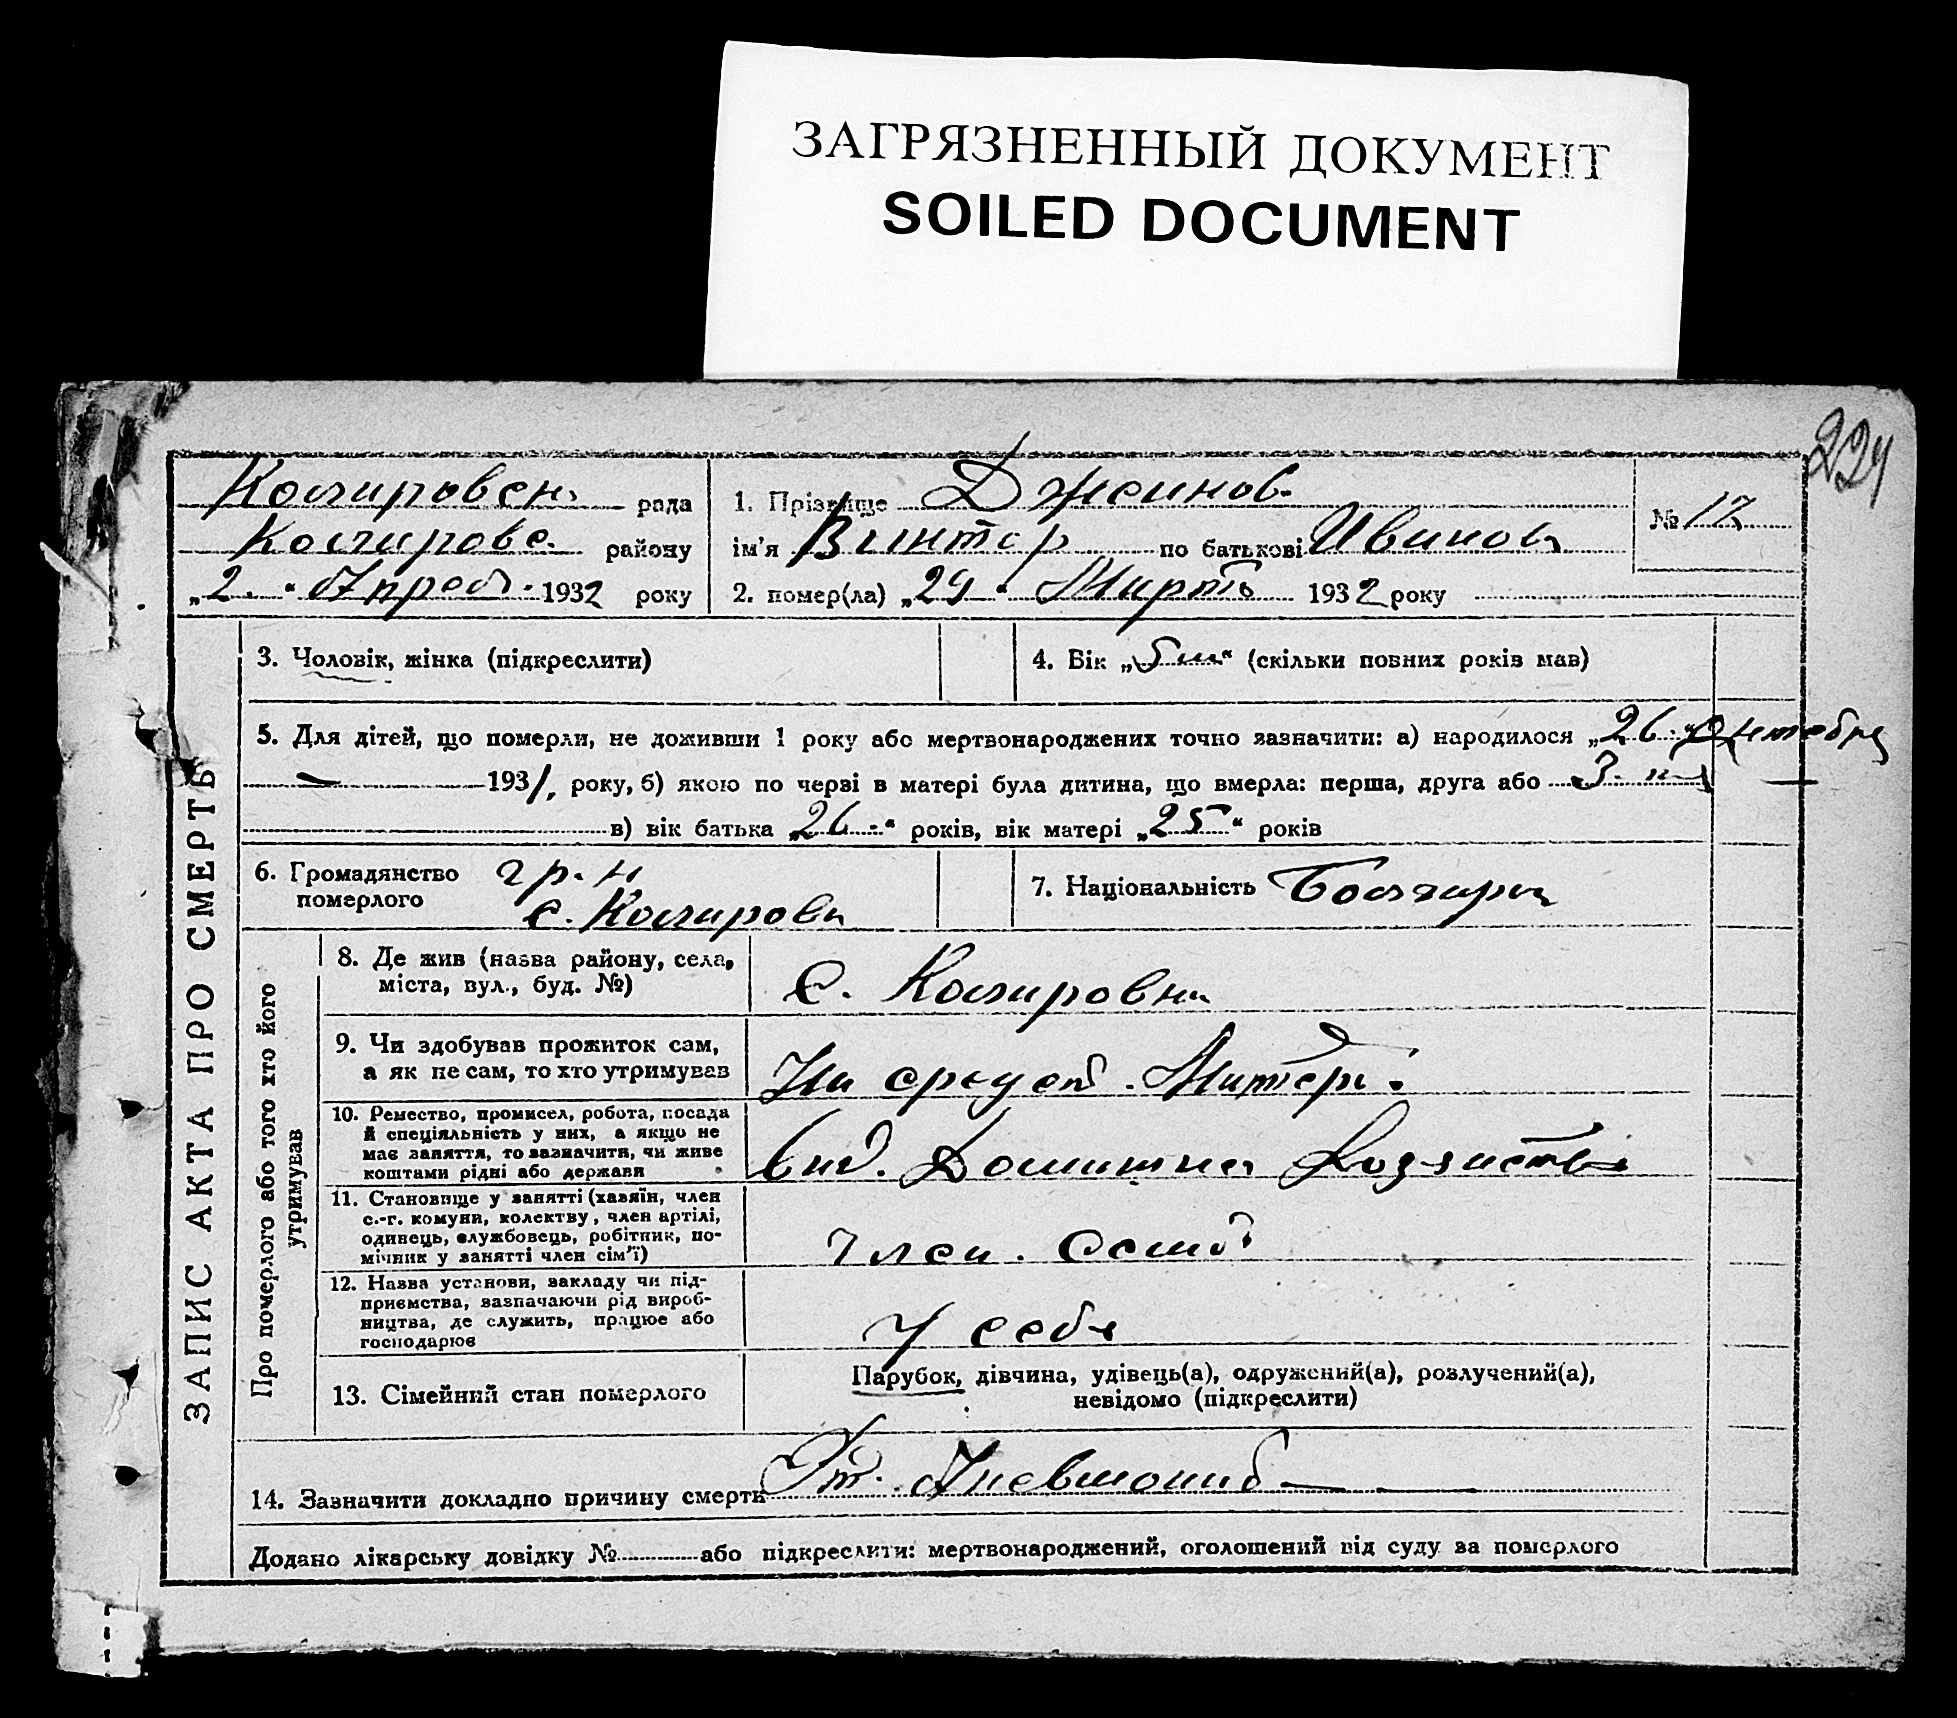 ЗАГРЯЗНЕННЫЙ ДОКУМЕНТ
SOILED DOCUMENT
224
рада
району
„2." Апрель 1932 року
1. Прізвище Джеинов
ім'я Виктор по батькові Иванов
2. помер(ла) „29" Март 1932 року
№ 12
ЗАПИС АКТА ПРО СМЕРТЬ
3. Чоловік, жінка (підкреслити)
4. Вік „5 м" (скільки повних років мав)
5. Для дітей, що померли, не доживши 1 року або мертвонароджених точно зазначити: а) народилося „26" Октября
1931, року, б) якою по черві в матері була дитина, що вмерла: перша, друга або 3
в) вік батька „26" років, вік матері „25" років
6. Громадянство гр-н
померлого с.
7. Національність Болгари
Про померлого або того хто його
утримував
8. Де жив (назва району, села,
міста, вул., буд. №)
с.
9. Чи здобував прожиток сам,
а як не сам, то хто утримував
На средст. Матери.
10. Ремество, промисел, робота, посада
й спеціяльність у них, а якщо не
має заняття, то зазначити, чи живе
коштами рідні або держави
Домашна Хозяиства
11. Становище у занятті (хазяїн, член
с.-г. комуни, колектву, член артілі,
одинець, службовець, робітник, по-
мічник у занятті член сім'ї)
Член Семьи
12. Назва установи, закладу чи під-
приємства, зазначаючи рід вироб-
ництва, де служить, працює або
господарює
У себя
13. Сімейний стан померлого
Парубок, дівчина, удівець(а), одружений(а), розлучений(а),
невідомо (підкреслити)
14. Зазначити докладно причину смерти От Пневмониа
Додано лікарську довідку № або підкреслити: мертвонароджений, оголошений від суду за померлого